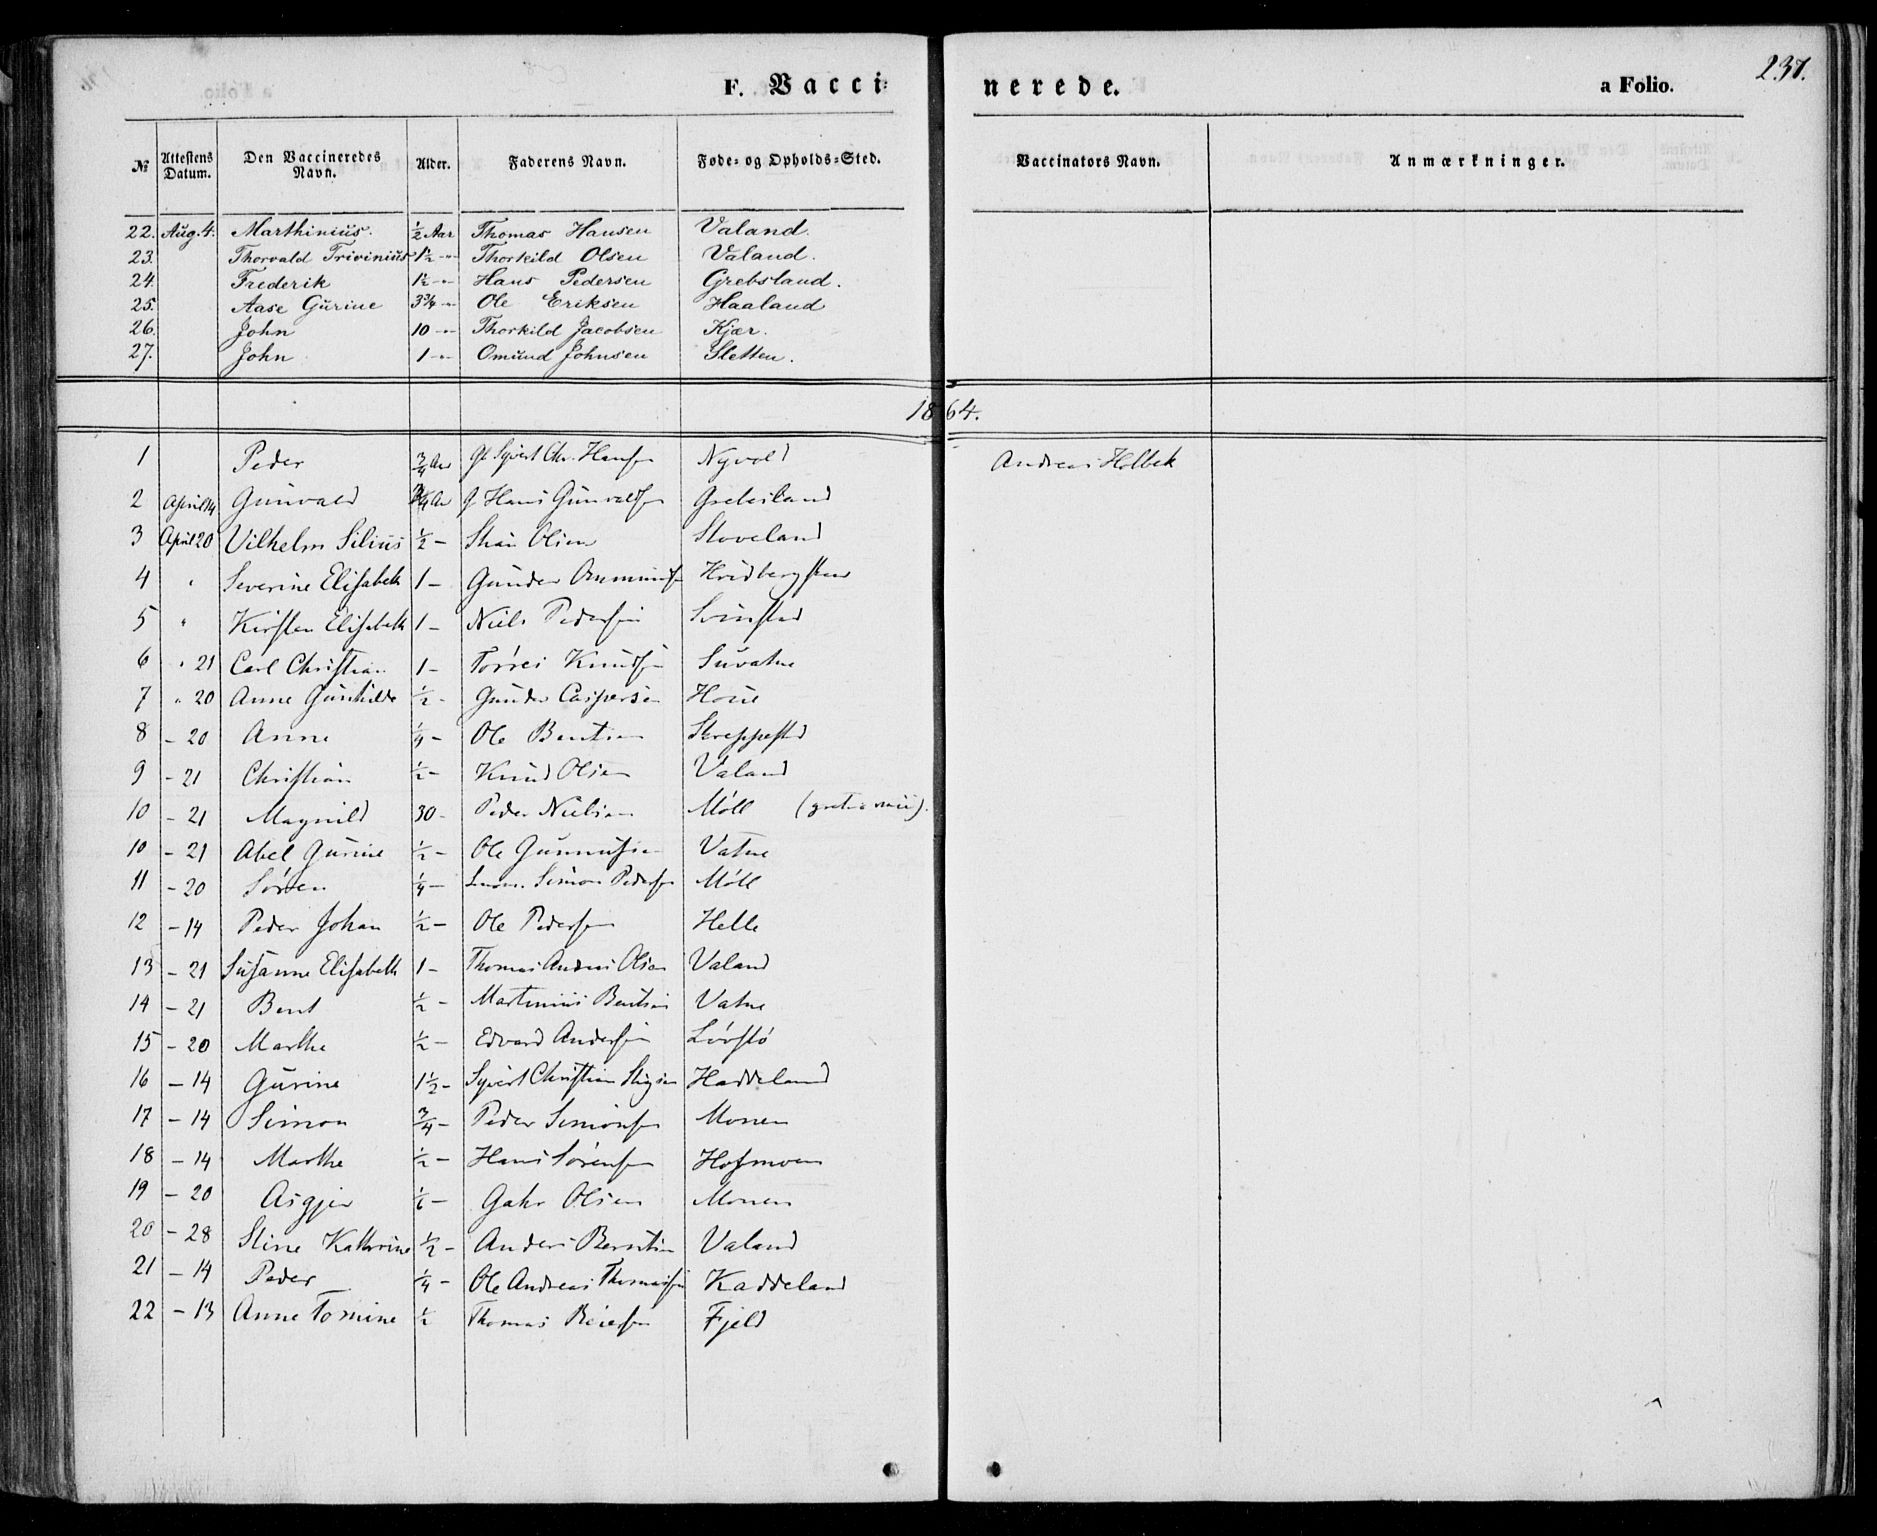 F. Vacci- nerede. a Folio. 237.
№ Attestens Datum. Den Vaccineredes Navn. Alder. Faderens Navn. Føde- og Opholds-Sted. Vaccinators Navn. Anmærkninger.
22. Aug. 4. Marthinius. ½ Aar Thomas Hansen Valand.
23. Thorvald Trivinius 1½ -"- Thorkild Olsen Valand.
24. Frederik 1½ -"- Hans Pedersen Grebsland.
25. Aase Gurine 3¾ -"- Ole Eriksen Haaland
26. John 10 -"- Thorkild Jacobsen Kjær.
27. John 1 -"- Omund Johnsen Sletten.
1864.
1 Peder ¾ Aar Syvert Chr. Hansen Nyvold Andreas Holbek
2 April 14 Gunvald ¾ Aar Hans Gunvaldsen Grebsland
3 April 20 Vilhelm Silius ½ - Olsen Stoveland
4 " Severine Elisabeth 1 - Gunder
5 " Kirsten Elisabeth 1 - Niels Pedersen
6 " 21 Carl Christian 1 - Torres Knudsen
7 " 20 Anne Gunhilde ½ - Gunder Caspersen Houe
8 - 20 Anne ¼ - Ole Bentsen Skreppestad
9 - 21 Christian ½ - Knud Olsen Valand
10 - 21 Magnild 30 - Peder Nielsen Møll
10 - 21 Abel Gurine ½ - Ole Vatne
11 - 20 Søren ¼ - Simon Pedersen Møll
12 - 14 Peder Johan ½ - Ole Pedersen Helle
13 - 21 Susanne Elisabeth 1 - Thomas Andreas Olsen Valand
14 - 21 Bent ½ - Martinius Bentsen Vatne
15 - 20 Marthe ½ - Edvard Andersen
16 - 14 Gurine 1½ - Syvert Christian Stigsen Haddeland
17 - 14 Simon ¾ - Peder Simonsen Monen
18 - 14 Marthe ½ - Hans Sørensen Hofmoen
19 - 20 Asgjer Olsen Monen
20 - 28 Stine Kathrine ½ - Anders Berntsen Valand
21 - 14 Peder ¼ - Ole Andreas Thomassen Kaddeland
22 - 13 Anne Tomine ½ Thomas Reiersen Fjeld